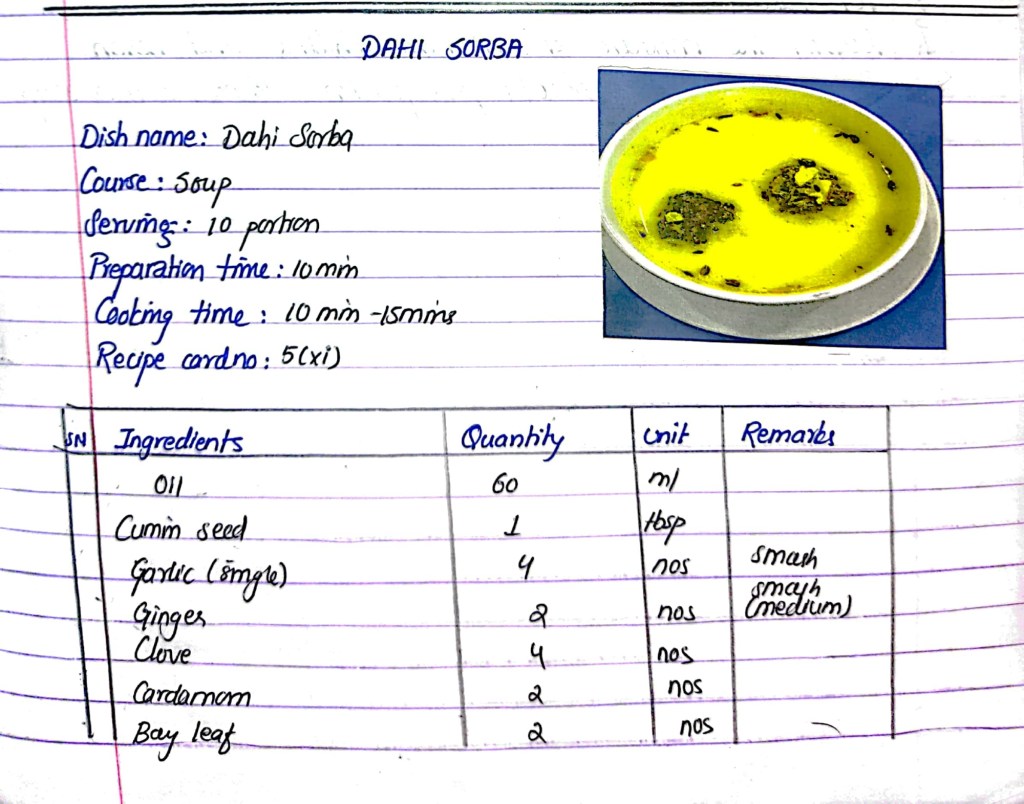 DAHI SORBA
Dish name: Dahi Sorba
Course: Soup
Serving: 10 portion
Preparation time: 10 min
Cooking time: 10 min - 15mins
Recipe card no: 5(xi)
SN Ingredients Quantity Unit Remarks
Oil 60 ml
Cumin seed 1 tbsp
Garlic (single) 4 nos smash
Ginger 2 nos smash (medium)
Clove 4 nos
Cardamom 2 nos
Bay leaf 2 nos